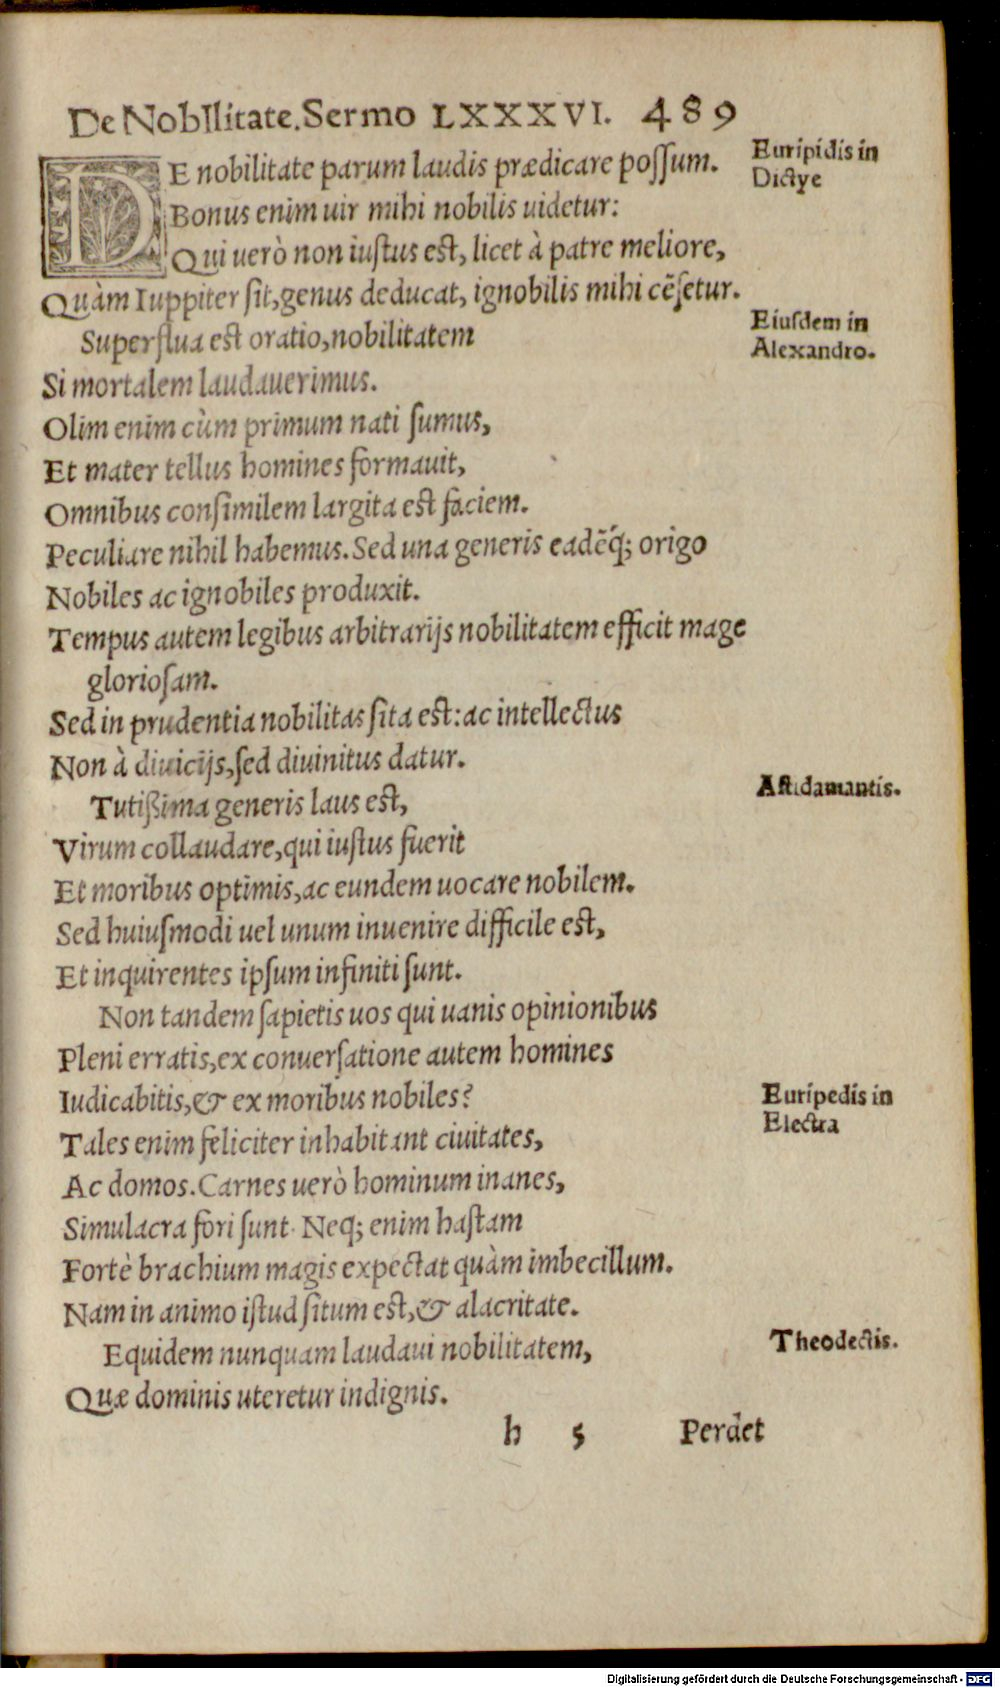 De NobIlitate. Sermo LXXXVI. 489
DE nobilitate parum laudis prædicare possum.
Euripidis in
Dictye
Bonus enim uir mihi nobilis uidetur:
Qui uerò non iustus est, licet à patre meliore,
Quàm Iuppiter sit, genus deducat, ignobilis mihi cẽsetur.
Superflua est oratio, nobilitatem
Eiusdem in
Alexandro.
Si mortalem laudauerimus.
Olim enim cùm primum nati sumus,
Et mater tellus homines formauit,
Omnibus consimilem largita est faciem.
Peculiare nihil habemus. Sed una generis eadẽq́; origo
Nobiles ac ignobiles produxit.
Tempus autem legibus arbitrarijs nobilitatem efficit mage
gloriosam.
Sed in prudentia nobilitas sita est: ac intellectus
Non à diuicijs, sed diuinitus datur.
Tutißima generis laus est,
Astidamantis.
Virum collaudare, qui iustus fuerit
Et moribus optimis, ac eundem uocare nobilem.
Sed huiusmodi uel unum inuenire difficile est,
Et inquirentes ipsum infiniti sunt.
Non tandem sapietis uos qui uanis opinionibus
Pleni erratis, ex conuersatione autem homines
Iudicabitis, & ex moribus nobiles?
Euripedis in
Electra
Tales enim feliciter inhabitant ciuitates,
Ac domos. Carnes uerò hominum inanes,
Simulacra fori sunt. Neq; enim hastam
Fortè brachium magis expectat quàm imbecillum.
Nam in animo istud situm est, & alacritate.
Equidem nunquam laudaui nobilitatem,
Theodectis.
Quæ dominis uteretur indignis.
h 5 Perdet
Digitalisierung gefördert durch die Deutsche Forschungsgemeinschaft - DFG